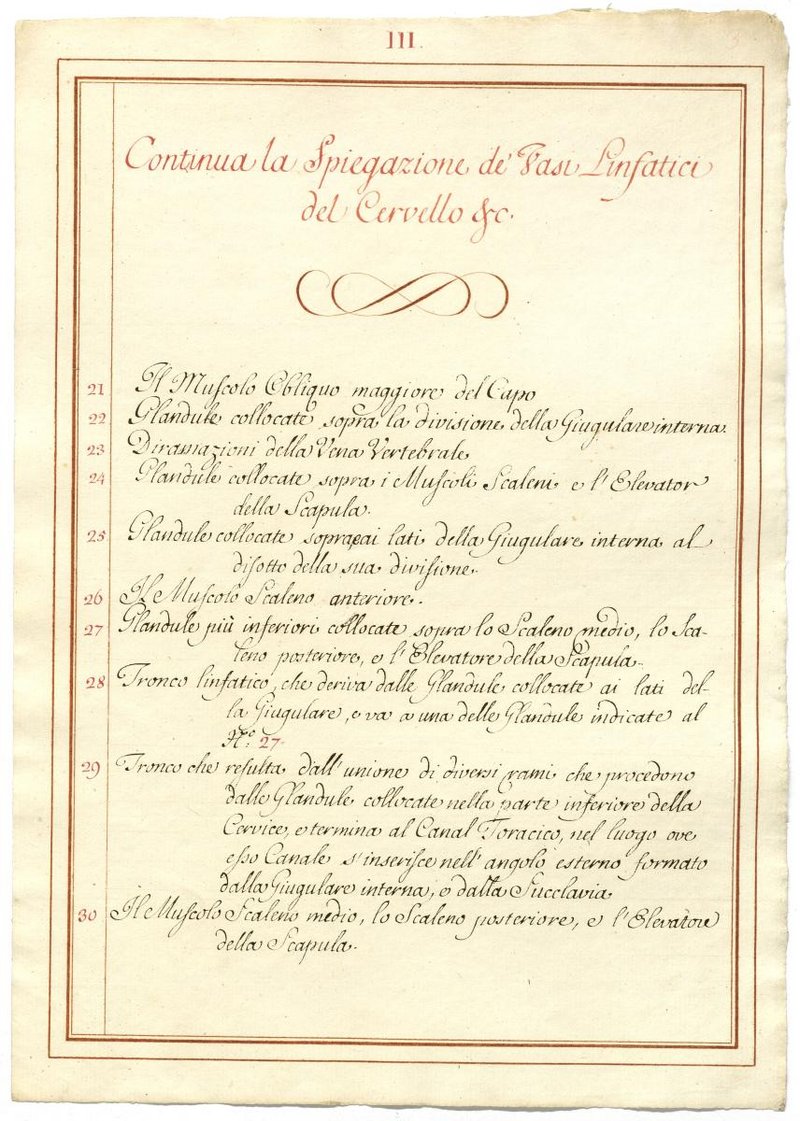 III.
Continua la Spiegazione de' Vasi Linfatici
del Cervello &c.
21 Il Muſcolo Obliquo maggiore del Capo
22 Glandule collocate sopra la divisione della Giugulare interna.
23 Diramazioni della Vena Vertebrale
24 Glandule collocate sopra i Muſcoli Scaleni e l'Elevator
della Scapula.
25 Glandule collocate sopra ai lati della Giugulare interna al
diſotto della sua diviſione.
26 Il Muſcolo Scaleno anteriore.
27 Glandule più inferiori collocate sopra lo Scaleno medio, lo Sca-
leno posteriore, e l'Elevatore della Scapula.
28 Tronco linfatico, che deriva dalle Glandule collocate ai lati del-
la Giugulare, e va a una delle Glandule indicate al
N.º 27.
29 Tronco che reſulta dall'unione di diverſi rami che procedono
dalle Glandule collocate nella parte inferiore della
Cervice, e termina al Canal Toracico, nel luogo ove
eſso Canale s'inserisce nell'angolo esterno formato
dalla Giugulare interna, e dalla Succlavia
30 Il Muſcolo Scaleno medio, lo Scaleno posteriore, e l'Elevatore
della Scapula.